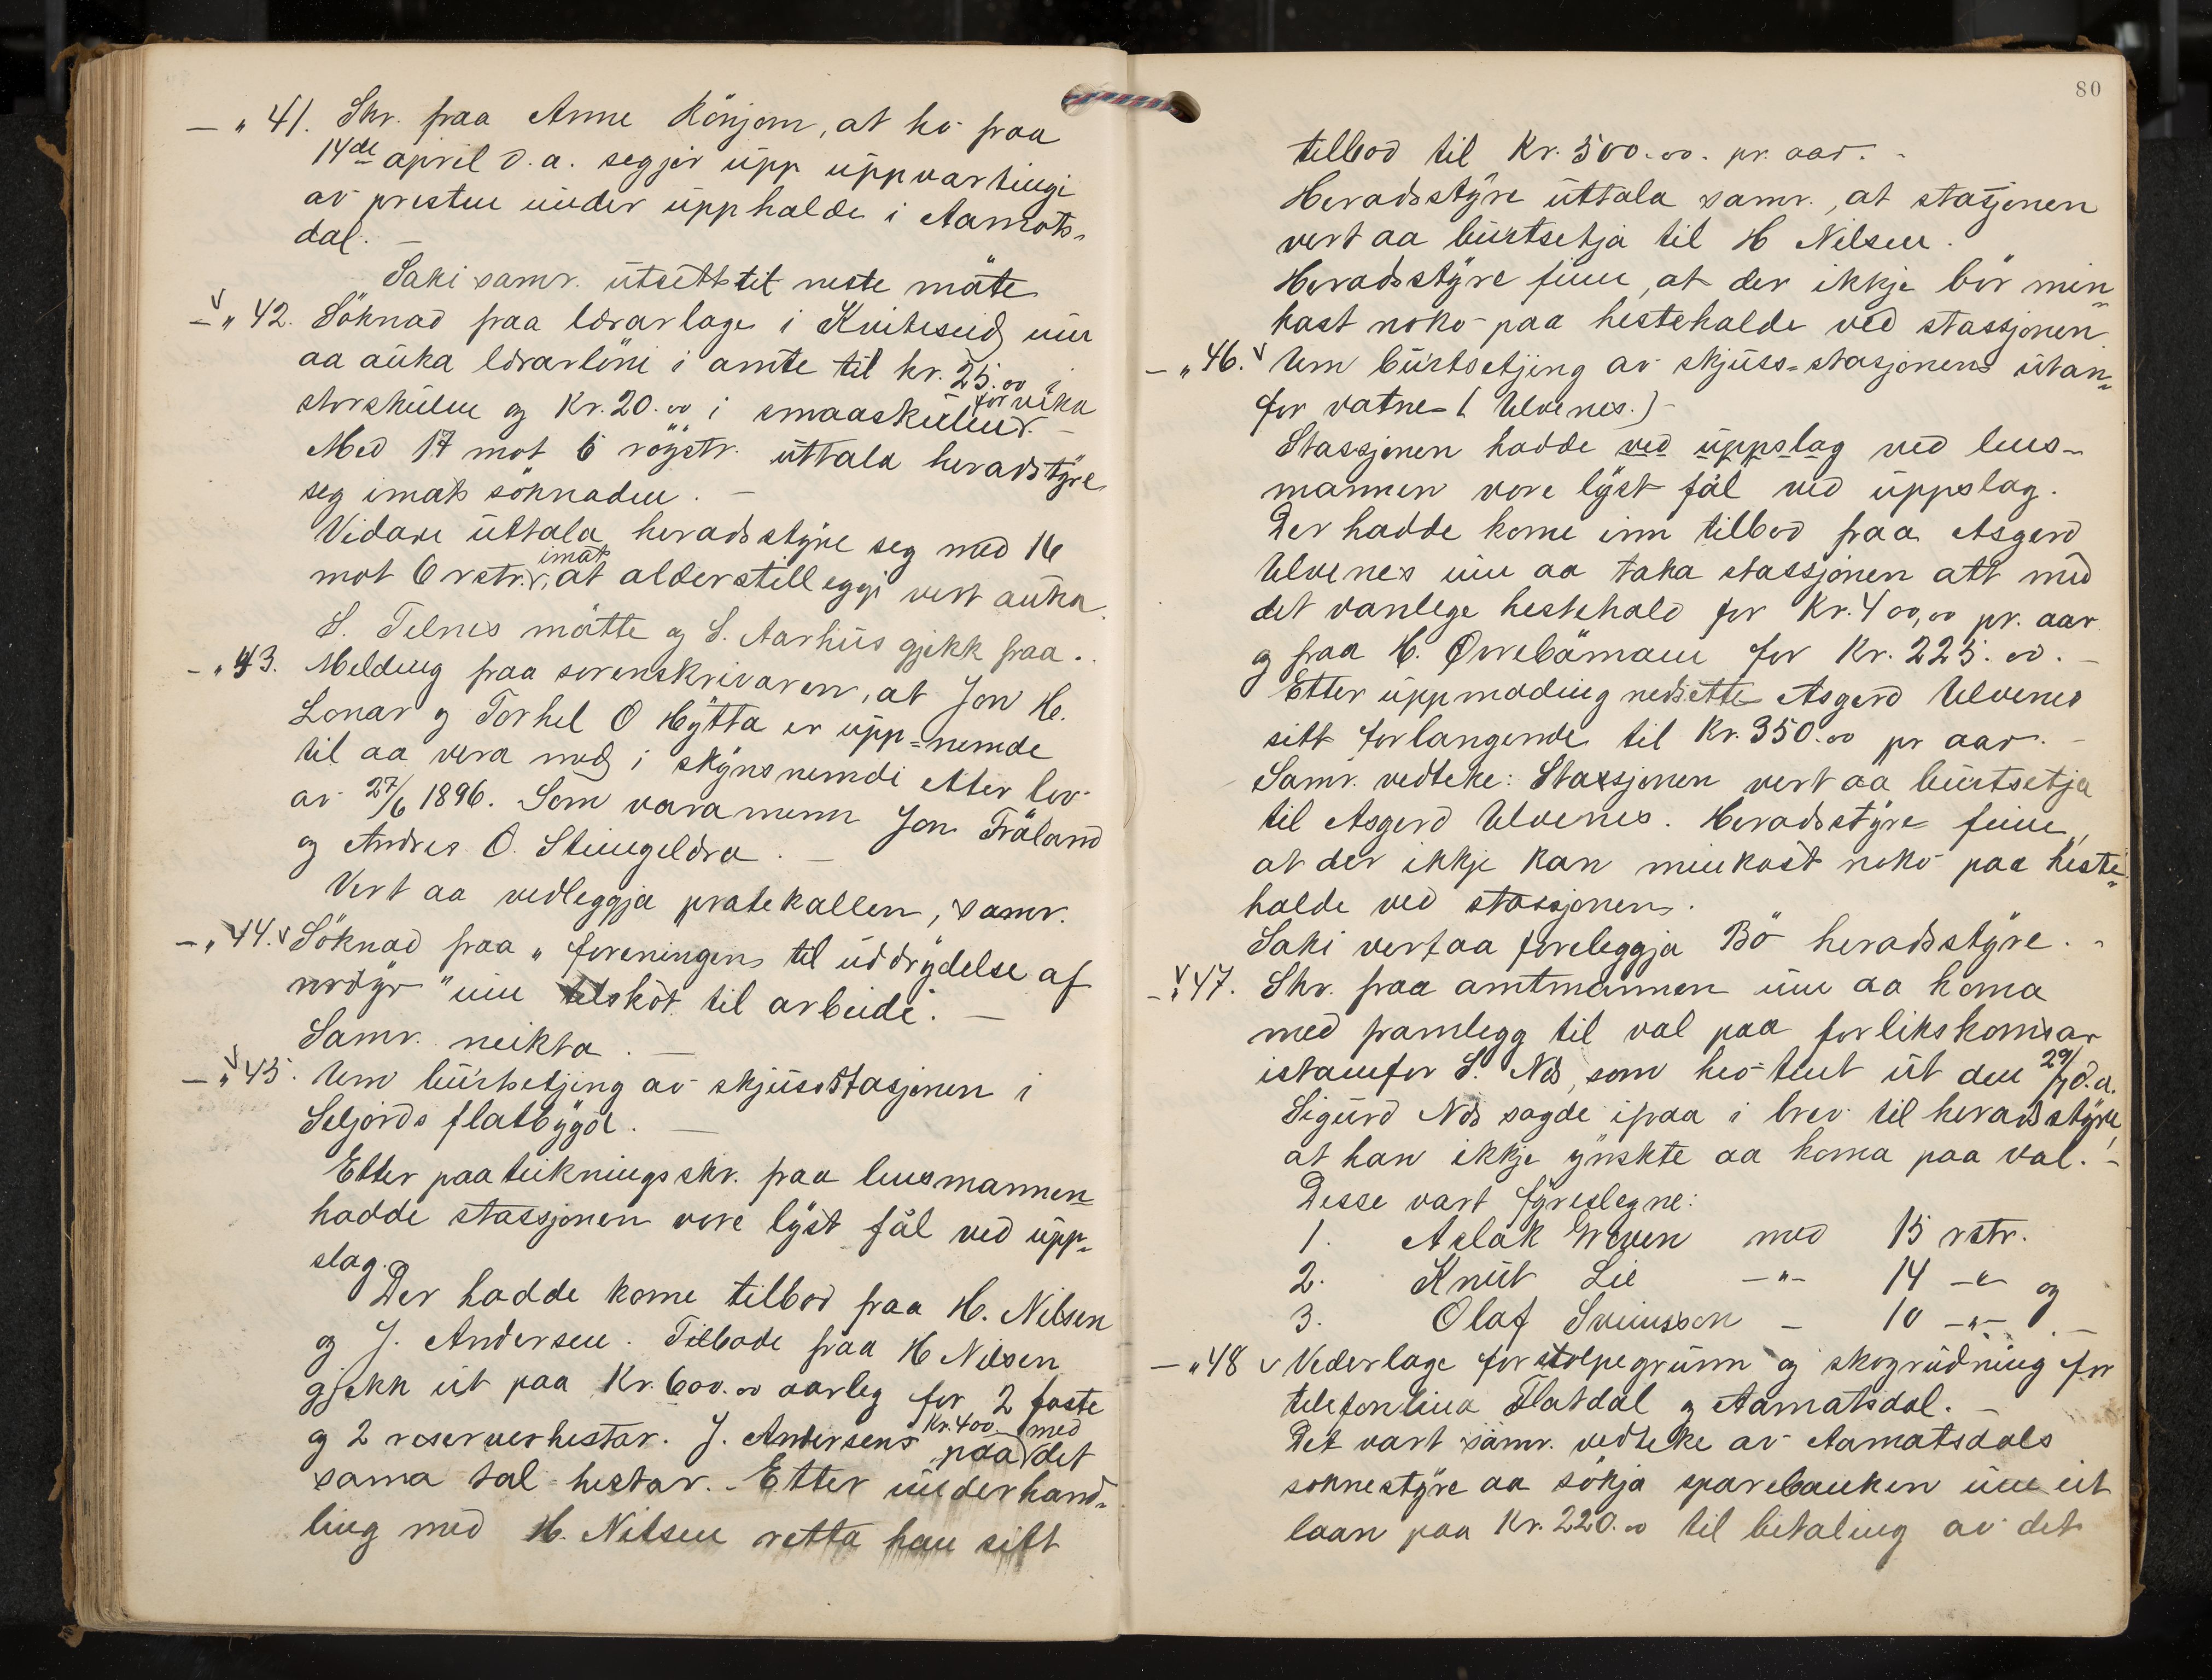 — „ 41. Skr. fraa Anne Rönjom, at ho fraa
14de april d.a. segjer upp uppvartingi
av presten under upphalde i Aamots-
dal. —
Saki samr. utsett til neste möte
— „ 42. Söknad fraa lærarlage i Kviteseid um
aa auka lærarlöni i amte til kr. 25.00 i
storskulen og Kr. 20.00 i smaaskulen for vika. —
Med 17 mot 6 röystr. uttala heradstyre
seg imot söknaden. —
Vidare uttala heradsstyre seg med 16
mot 6 rstr. imot, at alderstilleggi vert auka.
S. Telnes mötte og S. Aarhus gjekk fraa.
— „ 43. Melding fraa sorenskrivaren, at Jon H.
Lonar og Torkel O Hytta er upp=nemde
til aa vera med i skynsnemdi etter lov
av 27/6 1896. Som varamenn Jon Tröland
og Andres O. Steingeldra. —
Vert aa vedleggja protekollen, samr.
— „ 44. Söknad fraa „foreningen til uddrydelse af
rovdyr" um tilskot til arbeide. —
Samr. neikta. —
— „ 45. Um burtsetjing av skjusstasjonen i
Seljords flatbygd. —
Etter paateikningsskr. fraa lensmannen
hadde stassjonen vore lyst fål ved upp-
slag.
Der hadde kome tilbod fraa H. Nilsen
og J. Andersen. Tilbode fraa H Nilsen
gjekk ut paa Kr. 600.00 aarleg for 2 faste
og 2 reserverhestar. J. Andersens paa Kr. 400 med det
sama tal hestar. - Etter underhand-
ling med H. Nilsen retta han sitt
80
tilbod til Kr. 500.00. pr. aar. -
Heradsstyre uttala samr., at stasjonen
vert aa burtsetja til H Nilsen.
Heradsstyre finn, at der ikkje bör min-
kast noko paa hestehalde ved stassjonen.
— „ 46. Um burtsetjing av skjuss=stasjonen utan-
for vatne (Ulvenes.) -
Stassjonen hadde ved uppslag ved lens-
mannen vore lyst fål ved uppslag.
Der hadde kome inn tilbod fraa Asgerd
Ulvenes um aa taka stassjonen att med
det vanlege hestehald for Kr. 400,00 pr. aar
og fraa H. Övrebömoen for Kr. 225.00. —
Etter uppmoding nedsette Asgerd Ulvenes
sitt forlangende til Kr. 350.00 pr aar. —
Samr. vedteke: Stassjonen vert aa burtsetja
til Asgerd Ulvenes. Heradsstyre finn,
at der ikkje kan minkast noko paa heste-
halde ved stassjonen.
Saki vert aa foreleggja Bö heradsstyre. -
— „ 47. Skr. fraa amtmannen um aa koma
med framlegg til val paa forlikskomisar
istaenfor S. Nes, som hev tent ut den 29/7 d.a.
Sigurd Nes sagde ifraa i brev til heradsstyre,
at han ikkje ynskte aa koma paa val. -
Desse vart fyreslegne:
1. Aslak Graven med 15 rstr.
2. Knut Lie —"— 14 —"— og
3. Olaf Sveinsson — 10 —"—. —
— „ 48 Vederlage for stolpegrunn og skogrudning for
telefonlina Flatdal og Aamotsdal. —
Det vart samr. vedteke av Aamotsdals
soknestyre aa sökja sparebanken um eit
laan paa Kr. 220.00 til betaling av det